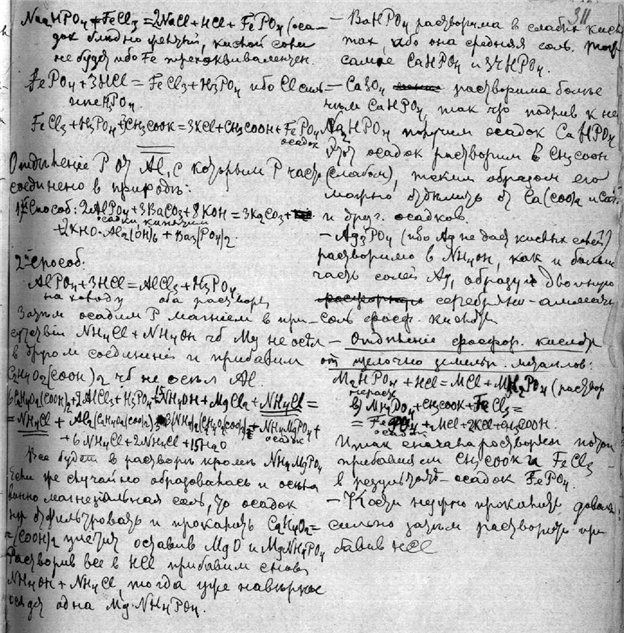 Na2HPO4 + FeCl3 = 2NaCl + HCl + FePO4 (оса-
док бледно желтый, кислой соли
не будет ибо Fe трехэквивалентен.
FePO4 + 3HCl = FeCl3 + H3PO4 ибо Cl силь-
нее H3PO4
FeCl3 + H3PO4 + 3CH3COOK = 3KCl + CH3COOH + FePO4
осадок
Отделение P от Al, с которым P часто
соединено в природе:
1й способ: 2AlPO4 + 3BaCO3 + 8KOH = 3K2CO3 +
осадки кипятим
+ 2KHO·Al2(OH)6 + Ba3(PO4)2
2й способ:
AlPO4 + 3HCl = AlCl3 + H3PO4
на холоду оба растворы
Затем осадим P магнием в при-
сутствии NH4Cl + NH4OH чтоб Mg не осел
в другом соединении и прибавим
C2H4O2(COOH)2 чтоб не осел Al.
= NH4Cl +
+ 6NH4Cl + 2NH4Cl + 15H2O
Все будет в растворе кроме NH4MgPO4
Если же случайно образовалась и основ-
ная магнезиальная соль, то осадок
отфильтровать и прокалить
(COOH)2 улетит оставив MgO и MgNH4PO4
Растворив все в HCl прибавим снова
NH4OH + NH4Cl, тогда уже наверное
осядет одна Mg·NH4PO4.
311
— BaHPO4 растворима в слабых кисл.
так, ибо она средняя соль. Тоже
самое CaHPO4 и SrHPO4.
— CaSO4 растворима более
чем CaHPO4, так что подлив к ней
Na2HPO4 получим осадок CaHPO4
Этот осадок растворим в CH3COOH
(слабой), таким образом его
можно отделить от Ca(COO)2
и друг. осадков.
— Ag3PO4 (ибо Ag не дает кислых солей)
растворимо в NH4OH, как и боль-
часть солей Ag, образуя двойную
серебряно-аммиачн.
соль фосф. кислоты
— Отделение фосфор. кислоты
от щелочно земельн. металлов:
MHPO4 + HCl = MCl + MH2PO4 (раствор
+ CH3COOK + FeCl3 =
= FePO4 + MCl + 2KCl + CH3COOH.
осадок
Итак сначала растворяем потом
прибавляем CH3COOK и FeCl3 —
в результате — осадок FePO4.
— Кости нужно прокалить доволь-
сильно затем растворить при-
бавив HCl